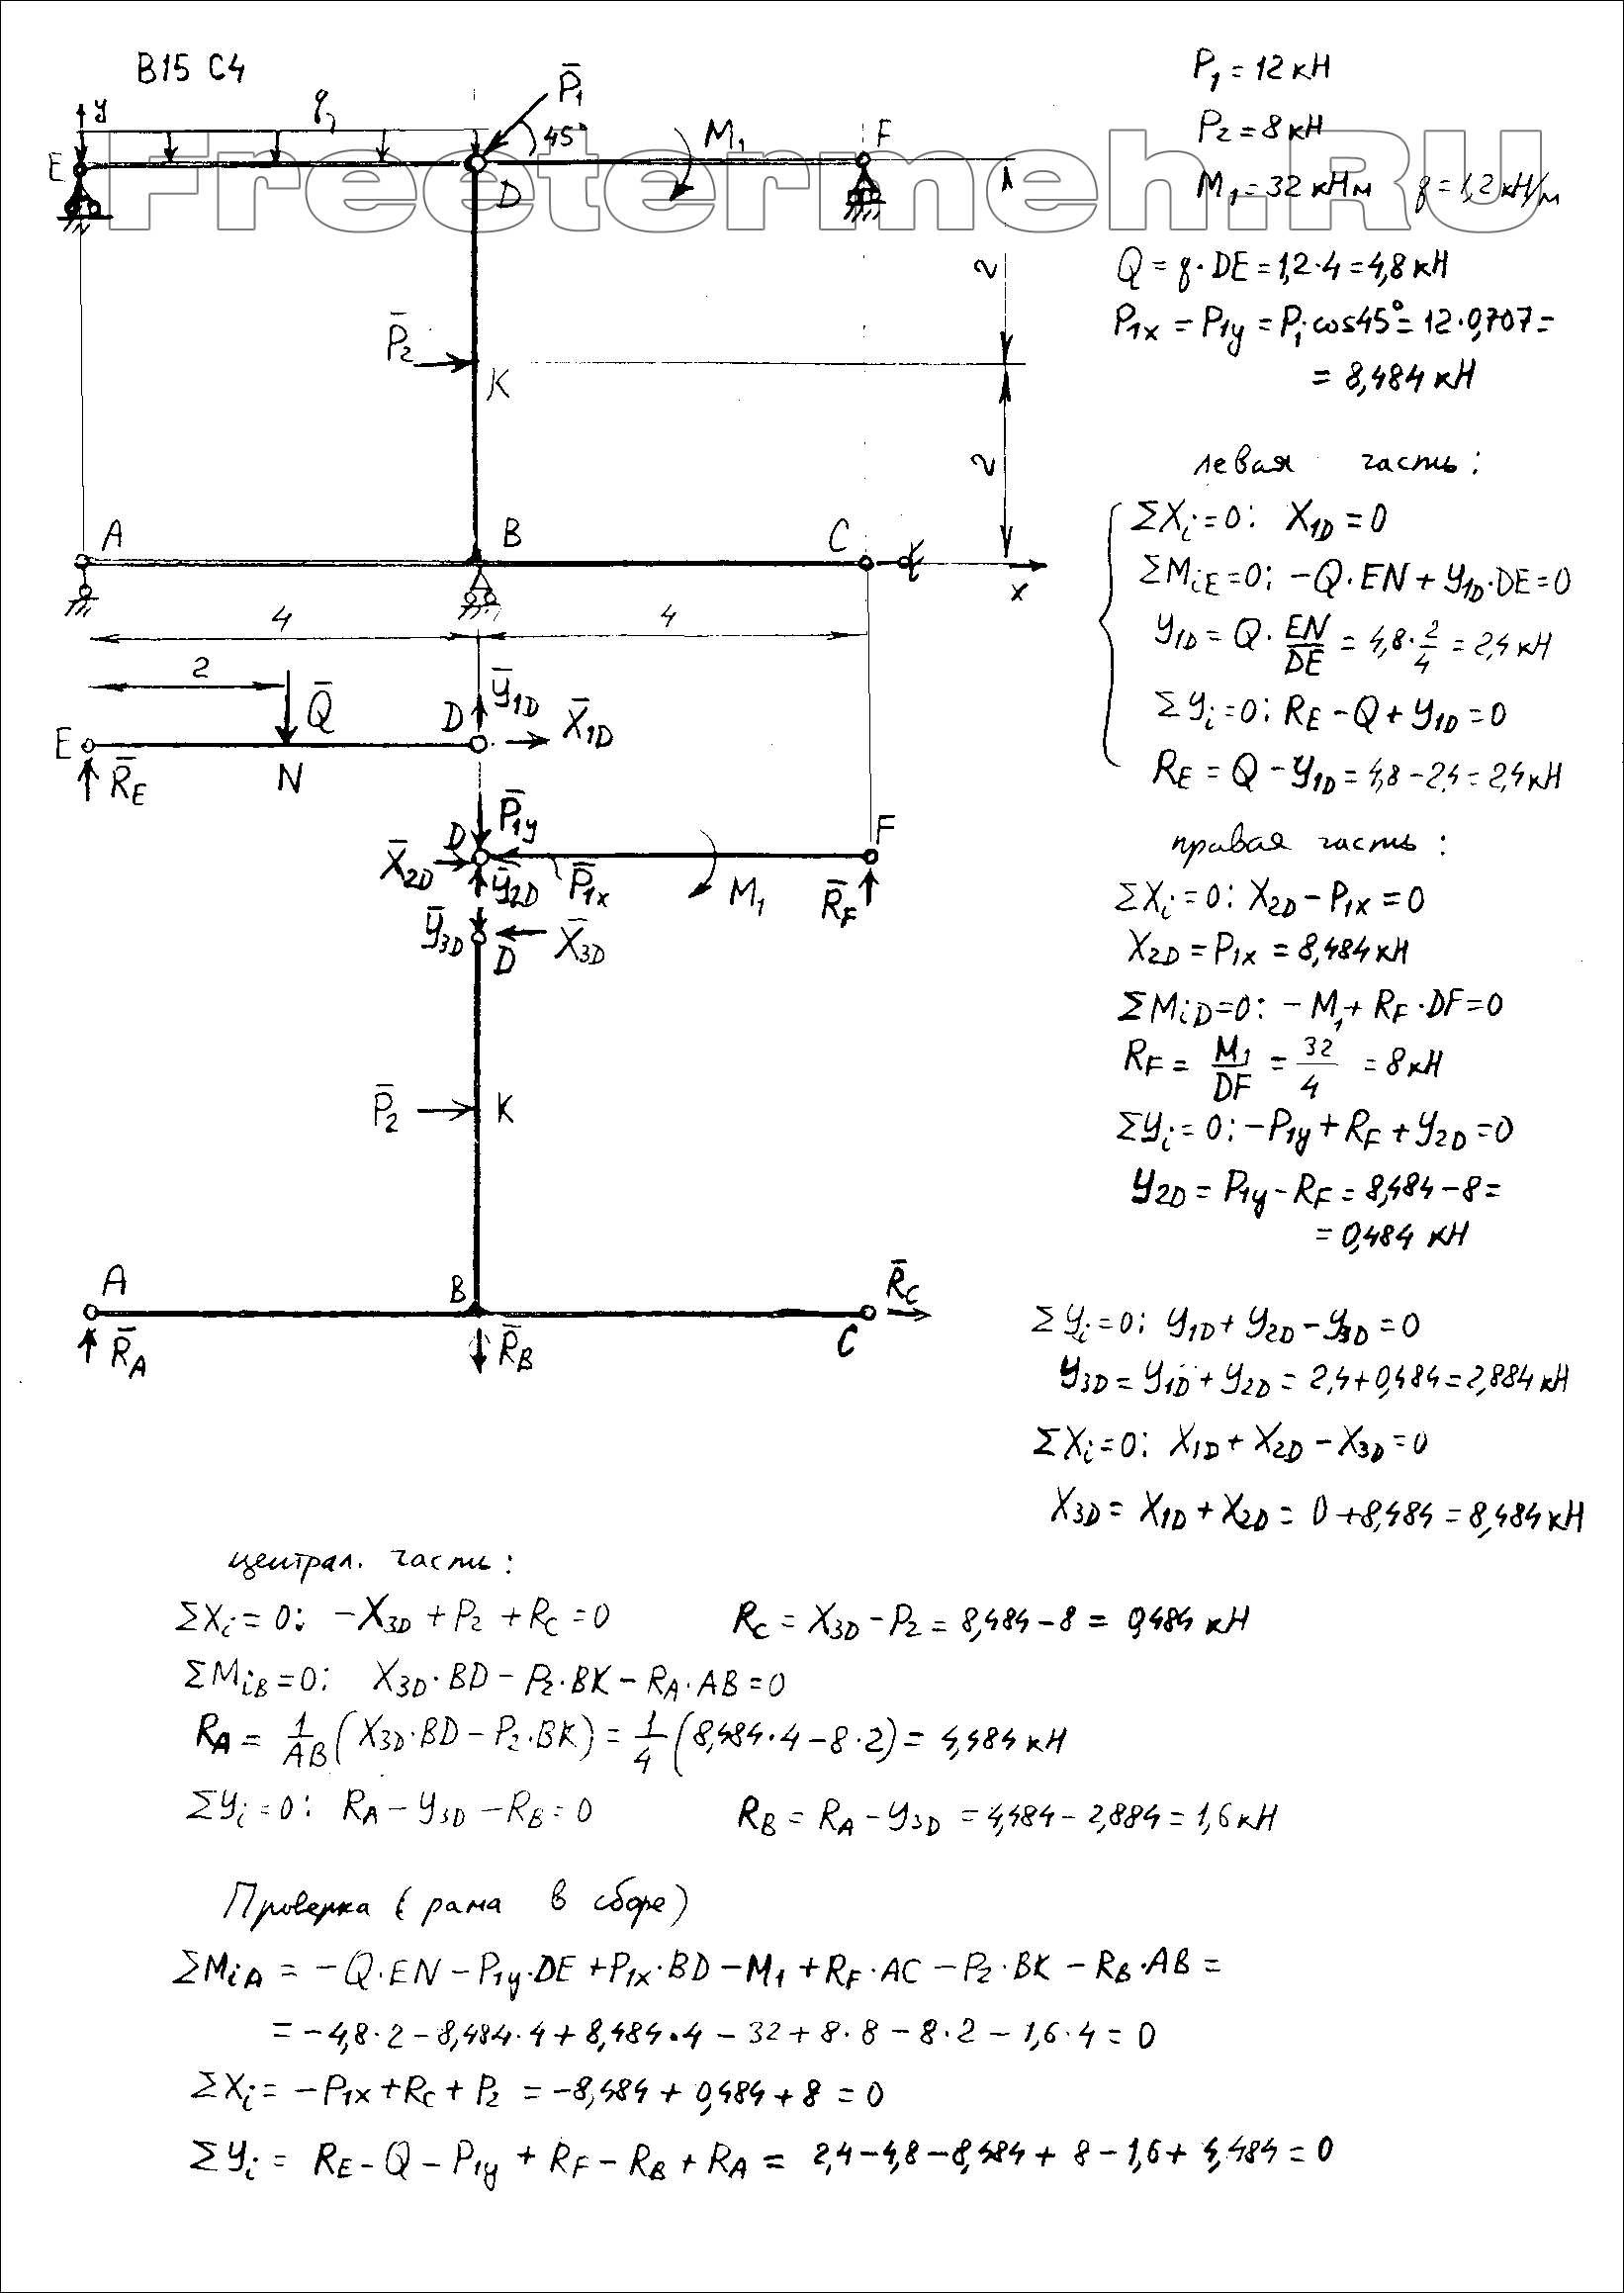 В15 С4
y
q
P̄₁
45°
M₁
F
E
D
P̄₂
K
2
2
A
B
C
x
4
4
2
Q̄
E
N
D
Ȳ₁D
X̄₁D
R̄E
P̄₁y
D
F
X̄₂D
Ȳ₂D
P̄₁x
M₁
R̄F
Ȳ₃D
D
X̄₃D
P̄₂
K
A
B
R̄C
R̄A
R̄B
C
Freetermeh.RU
P₁ = 12 кН
P₂ = 8 кН
M₁ = 32 кНм q = 1,2 кН/м
Q = q·DE = 1,2·4 = 4,8 кН
P₁x = P₁y = P₁ cos45° = 12·0,707 =
= 8,484 кН
левая часть:
ΣXi = 0: X₁D = 0
ΣMiE = 0: -Q·EN + Y₁D·DE = 0
Y₁D = Q · EN/DE = 4,8 · 2/4 = 2,4 кН
ΣYi = 0: RE - Q + Y₁D = 0
RE = Q - Y₁D = 4,8 - 2,4 = 2,4 кН
правая часть:
ΣXi = 0: X₂D - P₁x = 0
X₂D = P₁x = 8,484 кН
ΣMiD = 0: -M₁ + RF·DF = 0
RF = M₁/DF = 32/4 = 8 кН
ΣYi = 0: -P₁y + RF + Y₂D = 0
Y₂D = P₁y - RF = 8,484 - 8 =
= 0,484 кН
ΣYi = 0: Y₁D + Y₂D - Y₃D = 0
Y₃D = Y₁D + Y₂D = 2,4 + 0,484 = 2,884 кН
ΣXi = 0: X₁D + X₂D - X₃D = 0
X₃D = X₁D + X₂D = 0 + 8,484 = 8,484 кН
централ. часть:
ΣXi = 0: -X₃D + P₂ + RC = 0 RC = X₃D - P₂ = 8,484 - 8 = 0,484 кН
ΣMiB = 0: X₃D·BD - P₂·BK - RA·AB = 0
RA = 1/AB (X₃D·BD - P₂·BK) = 1/4 (8,484·4 - 8·2) = 4,484 кН
ΣYi = 0: RA - Y₃D - RB = 0 RB = RA - Y₃D = 4,484 - 2,884 = 1,6 кН
Проверка (рама в сборе)
ΣMiA = -Q·EN - P₁y·DE + P₁x·BD - M₁ + RF·AC - P₂·BK - RB·AB =
= -4,8·2 - 8,484·4 + 8,484·4 - 32 + 8·8 - 8·2 - 1,6·4 = 0
ΣXi = -P₁x + RC + P₂ = -8,484 + 0,484 + 8 = 0
ΣYi = RE - Q - P₁y + RF - RB + RA = 2,4 - 4,8 - 8,484 + 8 - 1,6 + 4,484 = 0